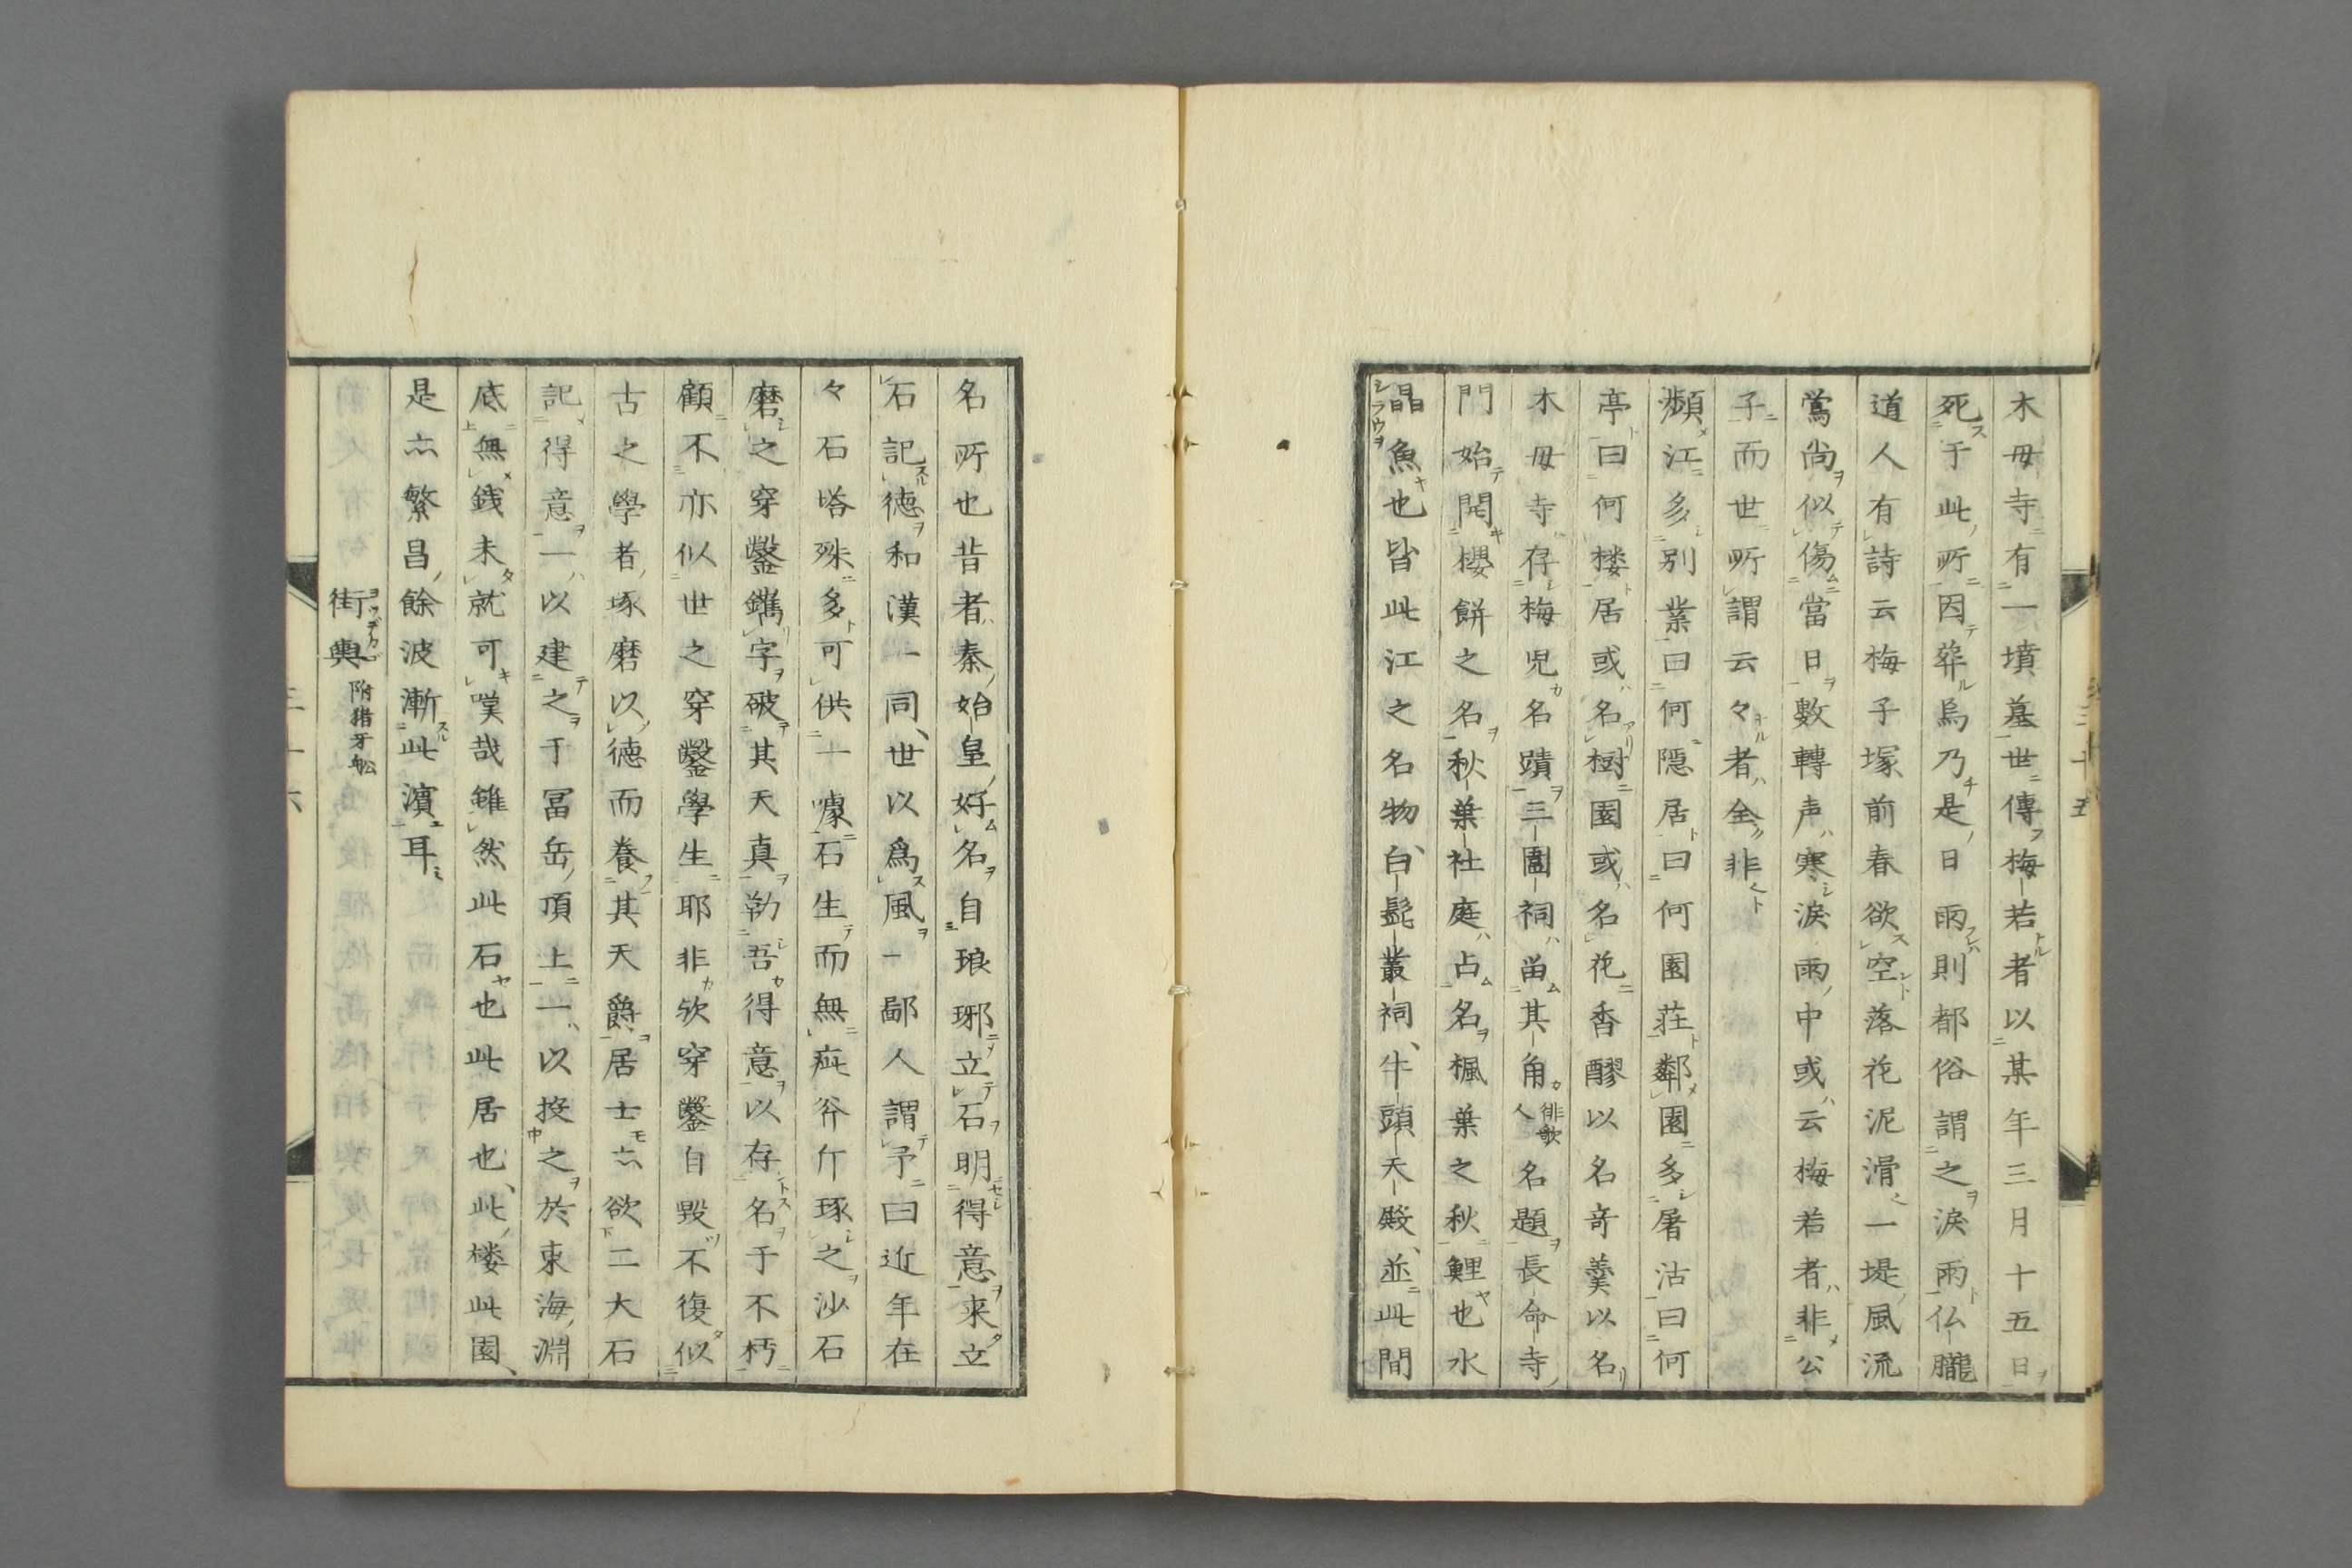 木毋寺有一墳墓世傳梅若者以某年三月十五日
死于此所因葬焉乃是日雨則都俗謂之淚雨仏朧
道人有詩云梅子塚前春欲空落花泥滑一堤風流
鶯尚似傷當日數轉声寒淚雨中或云梅若者非公
子而世所謂云々者全非
瀕江多別業曰何隱居曰何園荘鄰園多屠沽曰何
亭曰何楼居或名樹園或名花香醪以名奇羹以名
木毋寺存梅児名蹟三圍祠畄其角俳歌人名題長命寺
門始開櫻餅之名秋葉社庭占名楓葉之秋鯉也水
晶魚也皆此江之名物白髭叢祠牛頭天殿並此間
名所也昔者秦始皇好名自琅琊立石明得意来立
石記徳和漢一同世以為風一鄙人謂予曰近年在
々石塔殊多可供一噱石生而無疵斧斤琢之沙石
磨之穿鑿鐫字破其天真勒吾得意以存名于不朽
顧不亦似世之穿鑿學生耶非欤穿鑿自毀不復似
古之學者琢磨以徳而養其天爵居士亦欲二大石
記得意一以建之于冨岳頂上一以投之於東海淵
底無銭未就可嘆哉雖然此石也此居也此楼此園
是亦繁昌餘波漸此濱耳
街輿 附猪牙舩